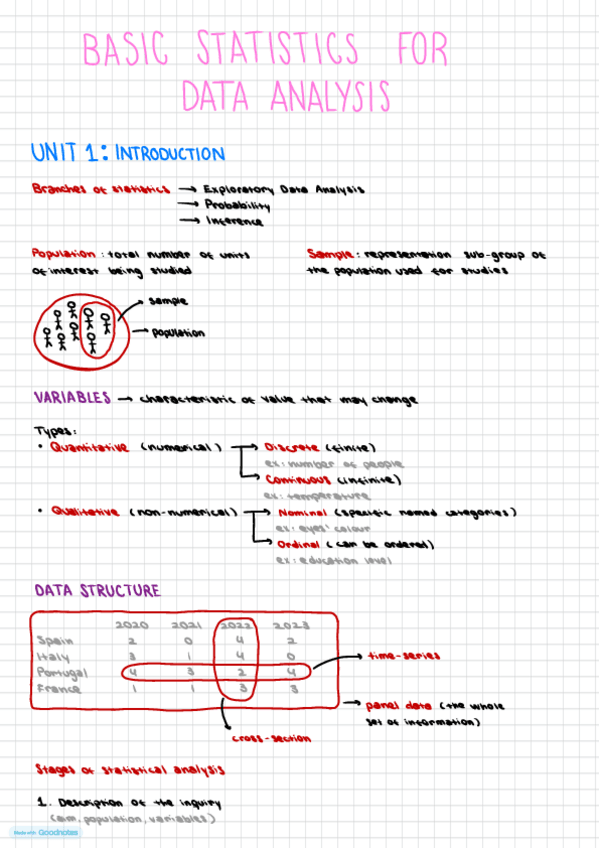 BASIC STATISTICS FOR
DATA ANALYSIS
UNIT 1: INTRODUCTION
Branches of statistics → Exploratory Data Analysis
→ Probability
→ Inference
Population: total number of units
of interest being studied
Sample: representation sub-group of
the population used for studies
sample
population
VARIABLES → characteristic of value that may change
Types:
• Quantitative (numerical) → Discrete (finite)
ex: number of people
Continuous (infinite)
ex: temperature
• Qualitative (non-numerical) → Nominal (specific named categories)
ex: eyes' colour
Ordinal (can be ordered)
ex: education level
DATA STRUCTURE
2020 2021 2022 2023
Spain 2 0 4 2
Italy 3 1 4 0
Portugal 4 3 2 4
France 1 1 3 3
→ time-series
→ panel data (the whole
set of information)
cross-section
Stages of statistical analysis
1. Description of the inquiry
(aim, population, variables)
Made with Goodnotes